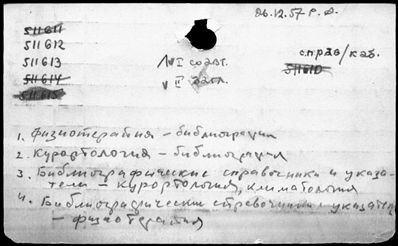 26.12.57 г. Ф.
511611
511612
511613
511614
511615
I соавт.
II загл.
справ/каб.
511610
1. Физиотерапия – библиография
2. Курортология – библиография
3. Библиографические справочники и указа-
тели – курортология, климатология
4. Библиографические справочники и указатели
– физиотерапия